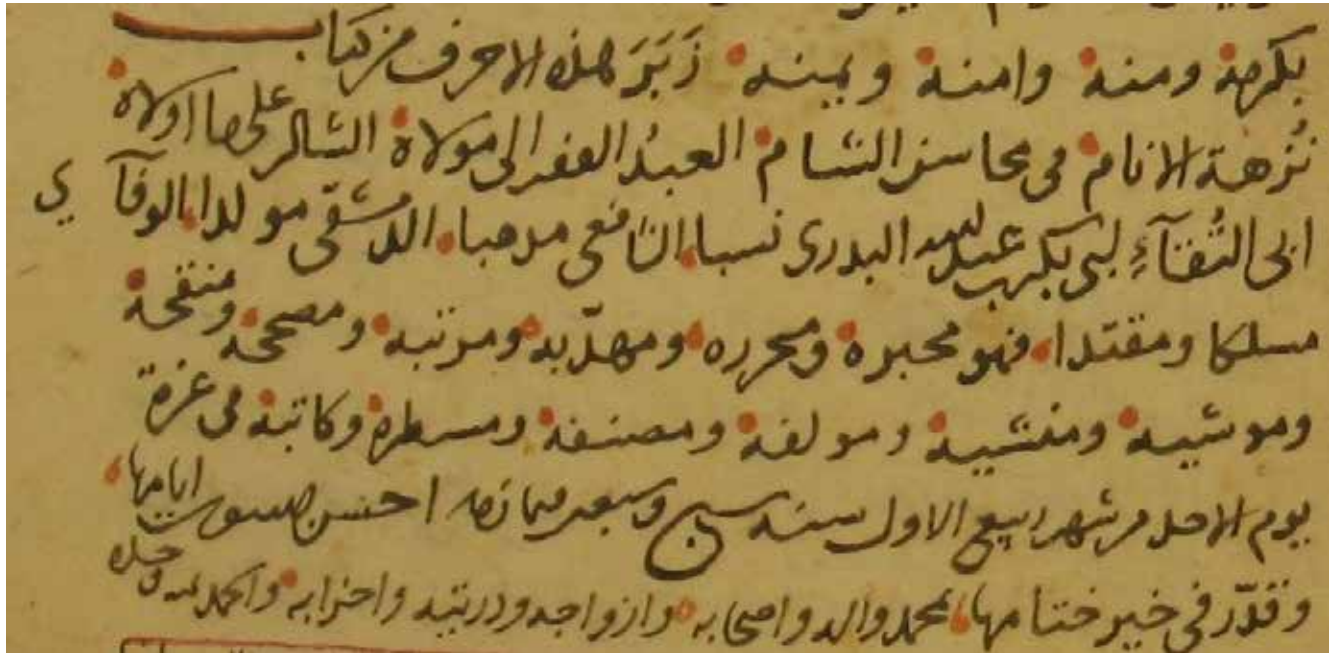 بكرمه ومنه وامنه ويمنه زَبَرَ هذه الاحرف من كتاب
نُزهة الانام في محاسن الشام العبدُ الفقير الى مولاه الشاكر على ما اولاه
ابى التُقآءِ ابى بكر بن عبد الله البدرى نسبا الشافعى مذهبا الدمشقى مولدا الوفآى
مسلكا ومقتدا فهو محبره ومحرره ومهذّبه ومرتبه ومصححه ومنقحه
وموشيه ومنشيه ومولفه ومصنفه ومسطره وكاتبه فى غرة
يوم الاحد من شهر ربيع الاول سنه سبع وسبعين وثمانمايه احسن الله ايامها
وقدّر فى خير ختامها بمحمد واله واصحابه وازواجه وذريته واحزابه والحمد لله وحده